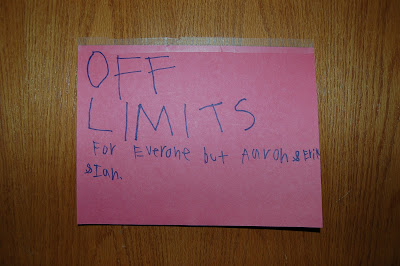 OFF
LIMITS
For Everone but Aaron & Erik
& Ian.